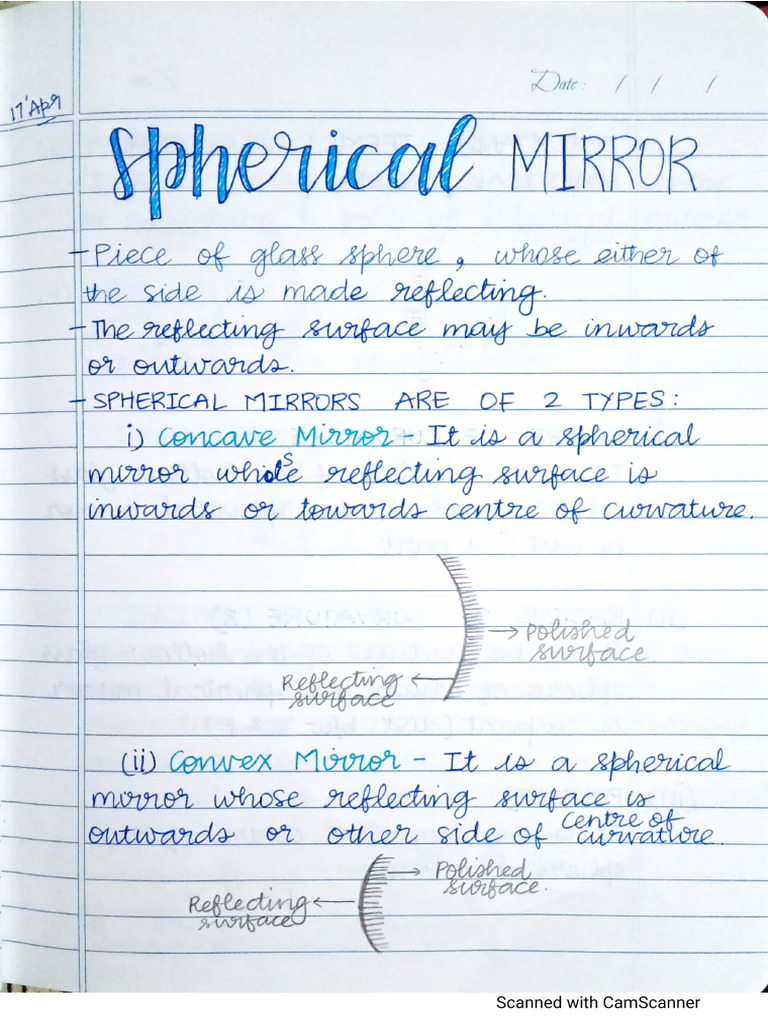 Date: / / /
17'Apr
Spherical MIRROR
- Piece of glass sphere, whose either of
the side is made reflecting.
- The reflecting surface may be inwards
or outwards.
- SPHERICAL MIRRORS ARE OF 2 TYPES:
i) Concave Mirror - It is a spherical
mirror whose reflecting surface is
inwards or towards centre of curvature.
→ Polished
surface
Reflecting ←
surface
(ii) Convex Mirror - It is a spherical
mirror whose reflecting surface is
outwards or other side of centre of curvature.
→ Polished
surface.
Reflecting ←
surface
Scanned with CamScanner